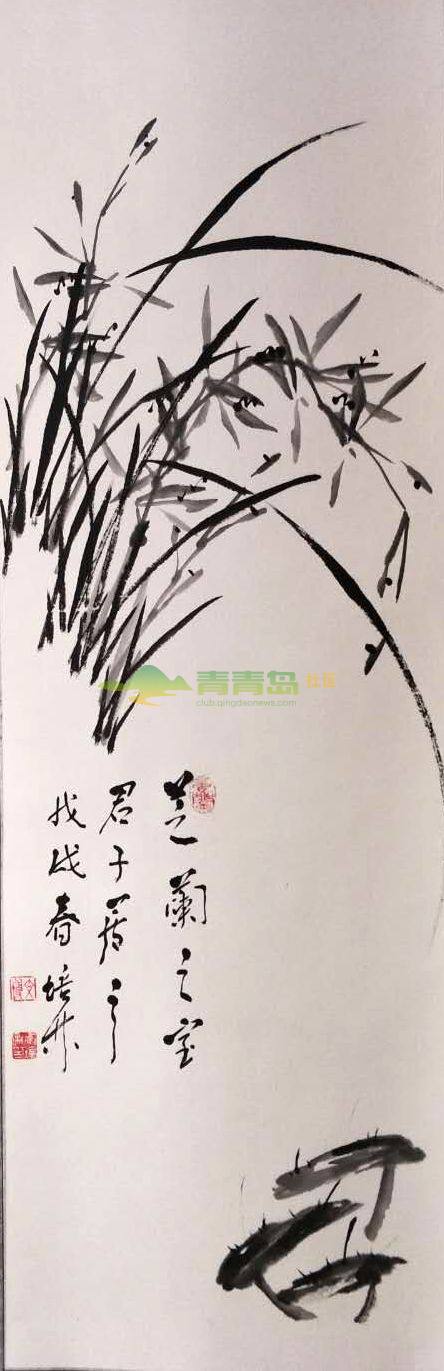 青青岛社区
club.qingdaonews.com
芝蘭之室
君子居之
戊戌春培